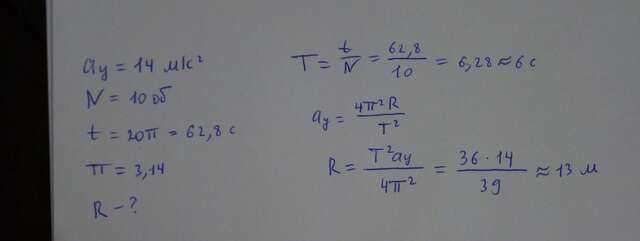 aу = 14 м/с²
N = 10 об
t = 20π = 62,8 с
π = 3,14
R – ?
T = t/N = 62,8/10 = 6,28 ≈ 6 с
aу = 4π²R/T²
R = T²aу/4π² = 36 · 14/39 ≈ 13 м